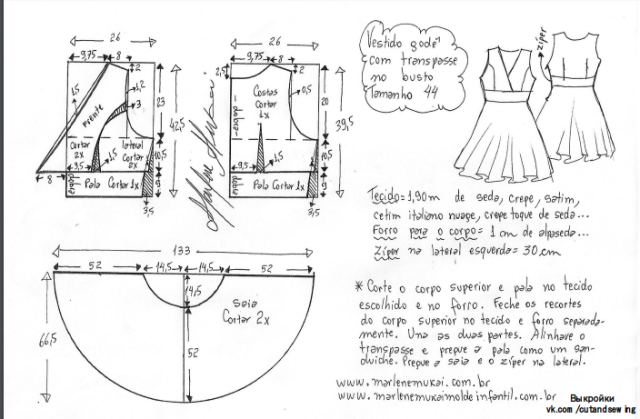 26
9,75
8
2
1,2
3
15
Frente
23
42,5
Cortar 2x
lateral
Cortar 2x
1,5
9,5
10,5
9
dobra
Pala Cortar 1x
8
3,5
26
2,5
9,75
8
2
0,5
Costas
Cortar 1x
dobra
20
39,5
1,5
9,5
10,5
9
dobra
Pala Cortar 1x
3,5
Vestido godê
com transpasse
no busto
Tamanho 44
zíper
Tecido = 1,90 m de seda, crepe, satim,
cetim italiano nuage, crepe toque de seda...
Forro para o corpo = 1 cm de alpaseda...
Zíper na lateral esquerda = 30 cm
133
52
14,5
14,5
52
14,5
Saia
Cortar 2x
66,5
52
* Corte o corpo superior e pala no tecido
escolhido e no forro. Feche os recortes
do corpo superior no tecido e forro separada-
mente. Una as duas partes. Alinhave o
transpasse e pregue a pala como um san-
duiche. Pregue a saia e o zíper na lateral.
www.marlenemukai.com.br
www.marlenemukaimoldeinfantil.com.br
Выкройки
vk.com/cutandsewing